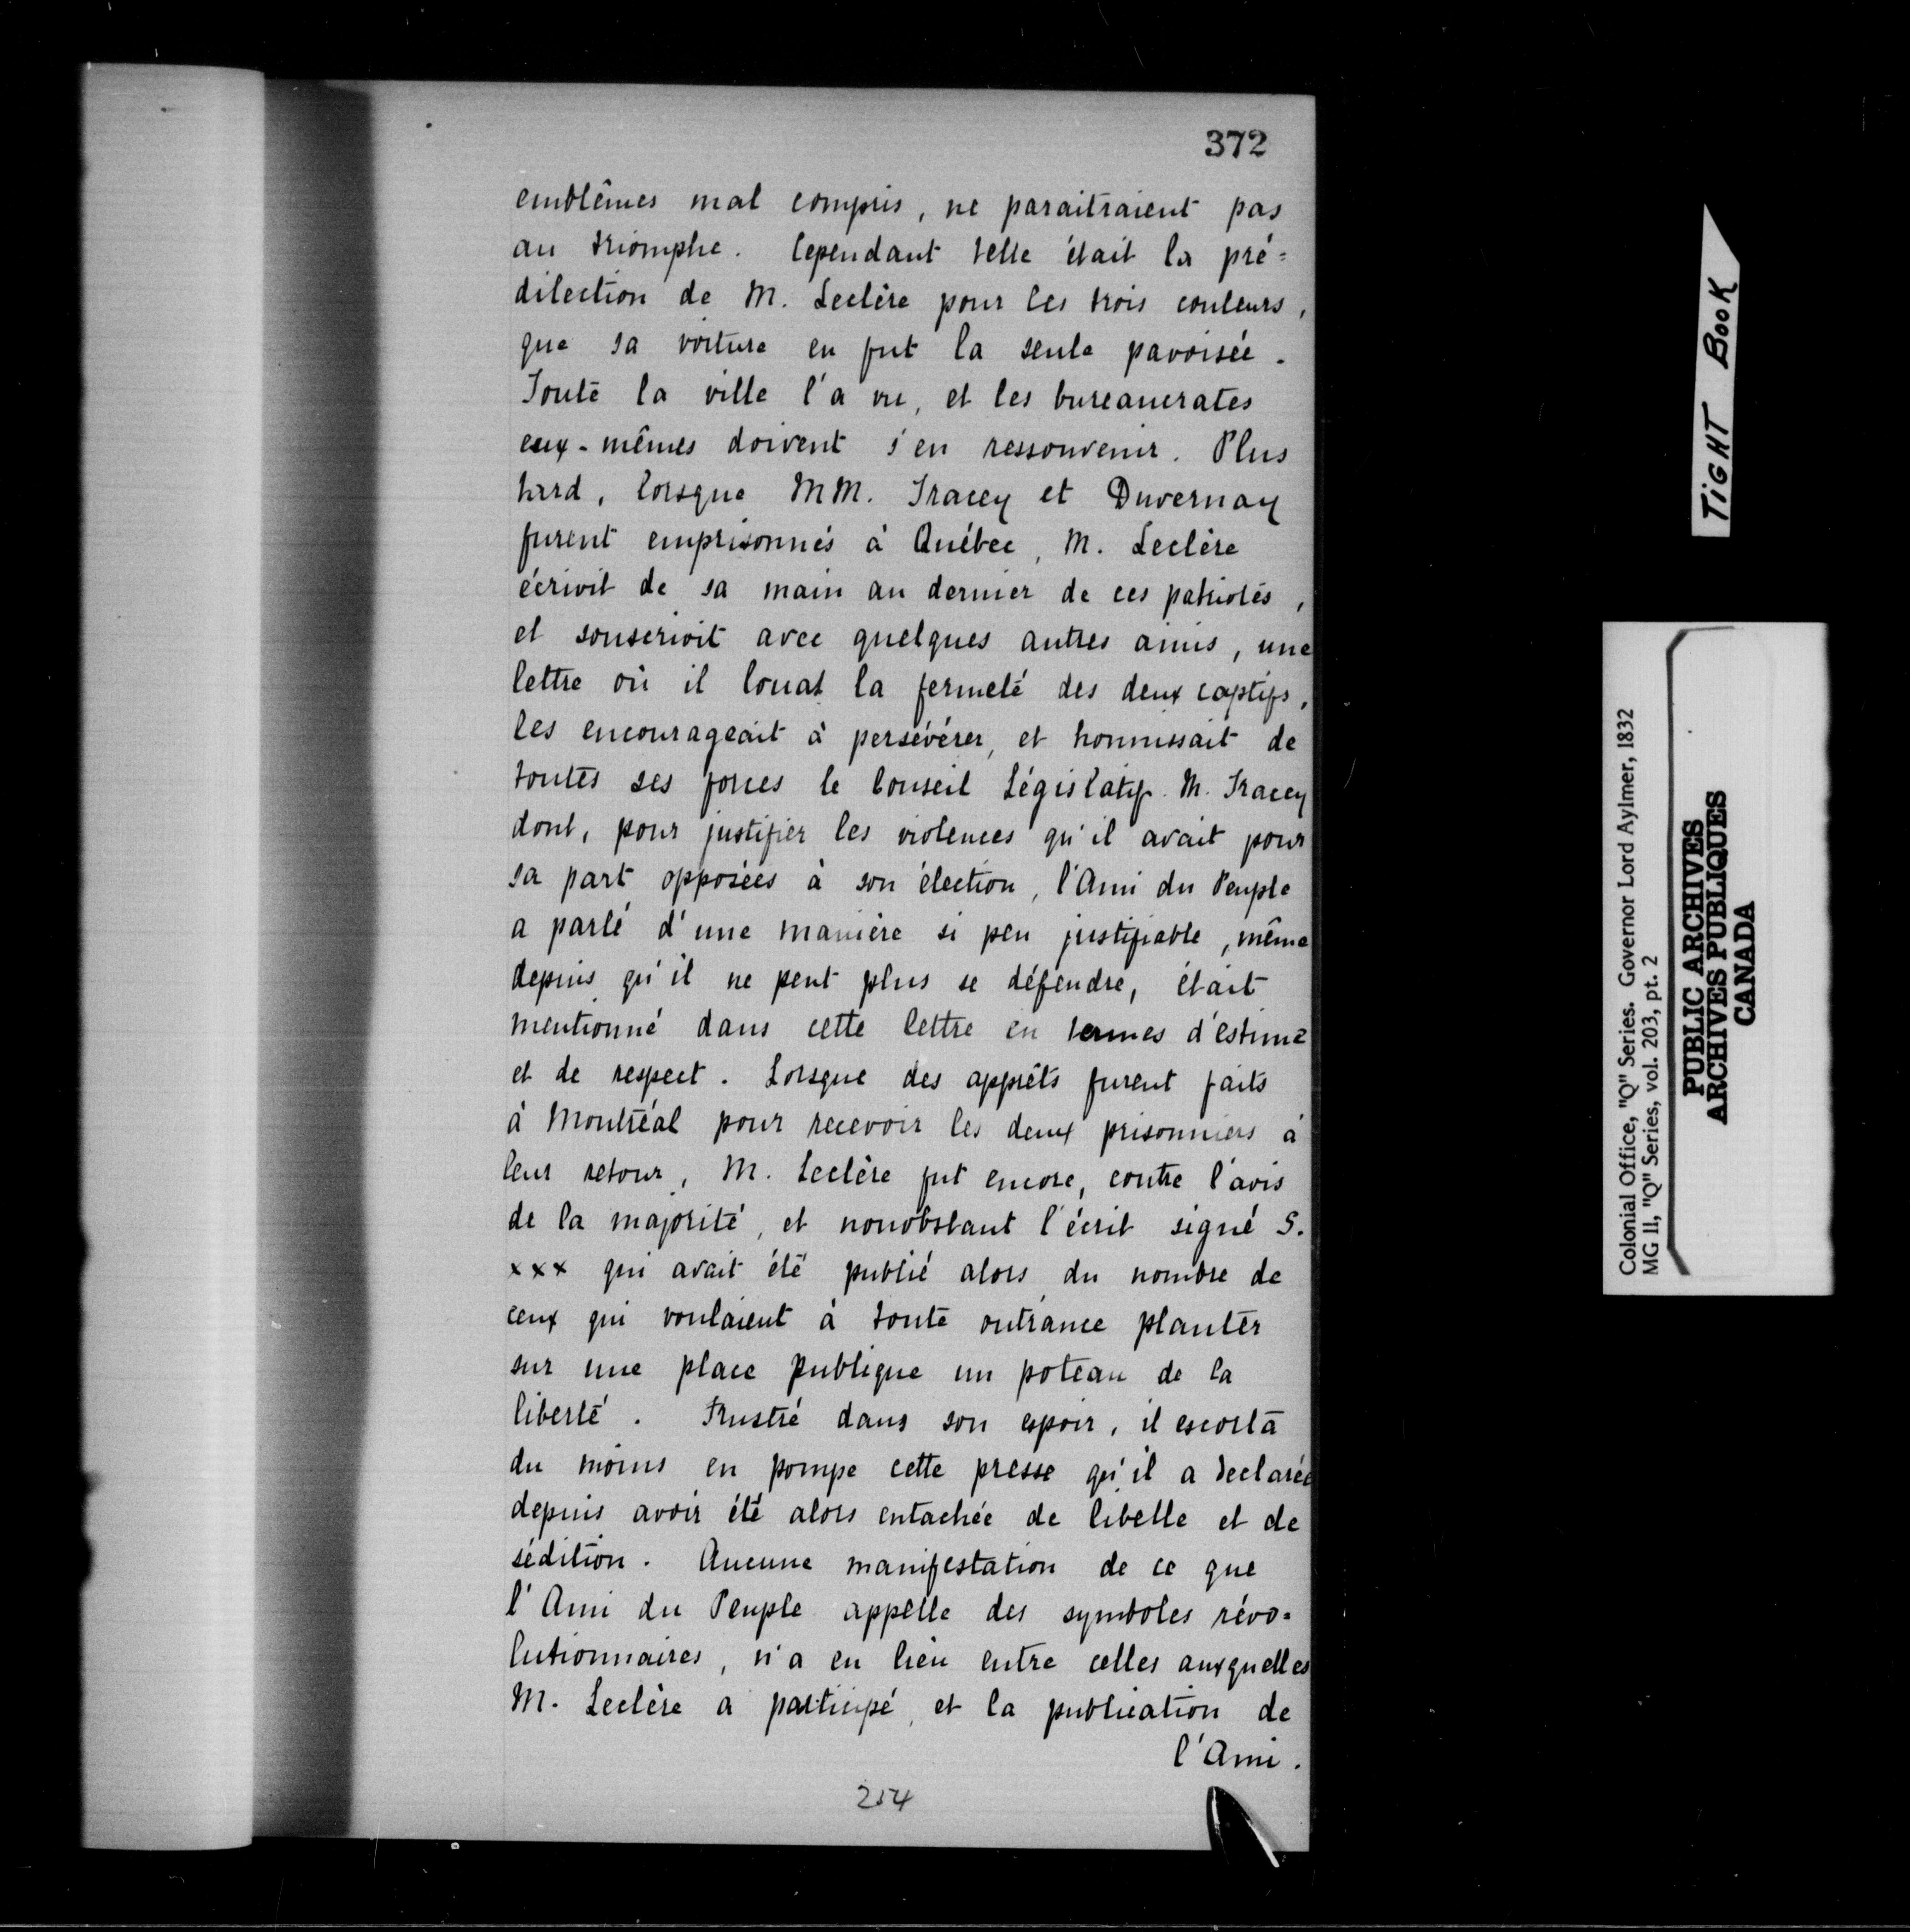 372
emblêmes mal compris, ne paraitraient pas
au triomphe. Cependant telle était la pré=
dilection de M. Leclère pour les trois couleurs,
que sa voiture en fut la seule pavoisée.
Toute la ville l'a vu, et les bureaucrates
eux-mêmes doivent s'en ressouvenir. Plus
tard, lorsque MM. Tracey et Duvernay
furent emprisonnés à Québec, M. Leclère
écrivit de sa main au dernier de ces patriotes,
et souscrivit avec quelques autres amis, une
lettre où il louat la fermeté des deux captifs,
les encourageait à persévérer, et honnissait de
toutes ses forces le Conseil Législatif. M. Tracey
dont, pour justifier les violences qu'il avait pour
sa part opposées à son élection, l'Ami du Peuple
a parlé d'une manière si peu justifiable, même
depuis qu'il ne peut plus se défendre, était
mentionné dans cette lettre en termes d'estime
et de respect. Lorsque des apprêts furent faits
à Montréal pour recevoir les deux prisonniers à
leur retour, M. Leclère fut encore, contre l'avis
de la majorité, et nonobstant l'écrit signé S.
xxx qui avait été publié alors, du nombre de
ceux qui voulaient à toute outrance planter
sur une place publique un poteau de la
liberté. Frustré dans son espoir, il escorta
du moins en pompe cette presse qu'il a declarée
depuis avoir été alors entachée de libelle et de
sédition. Aucune manifestation de ce que
l'Ami du Peuple appelle des symboles révo=
lutionnaires, n'a eu lieu entre celles auxquelles
M. Leclère a participé, et la publication de
l'Ami.
254
TIGHT BOOK
Colonial Office, "Q" Series. Governor Lord Aylmer, 1832
MG 11, "Q" Series, vol. 203, pt. 2
PUBLIC ARCHIVES
ARCHIVES PUBLIQUES
CANADA